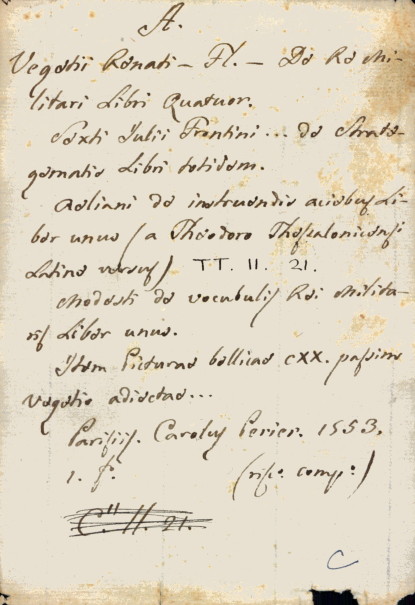 A.
Vegetii Renati – Fl. – De Re Mi-
litari Libri Quatuor.
Sexti Iulii Frontini ... de Strate-
gematis Libri totidem.
Aeliani de instruendis aciebus Li-
ber unus (a Theodoro Thessalonicensi
Latine versus) TT. 11. 21.
Modesti de vocabulis Rei Milita-
ris Liber unus.
Item Picturae bellicae CXX. passim
Vegetio adiectae...
Parisiis. Carolus Perier. 1553.
1. f.º (risc.º comp.º)
C. 11. 21.
C